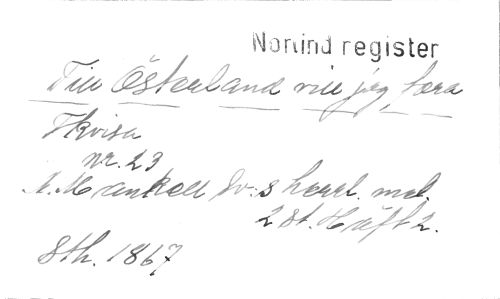 Norlind register
Till Österland vill jag fara
Fkvisa
nr. 23
A. Mankell Sv:s herrl. mel.
2 St. Häft 2.
Sth. 1867